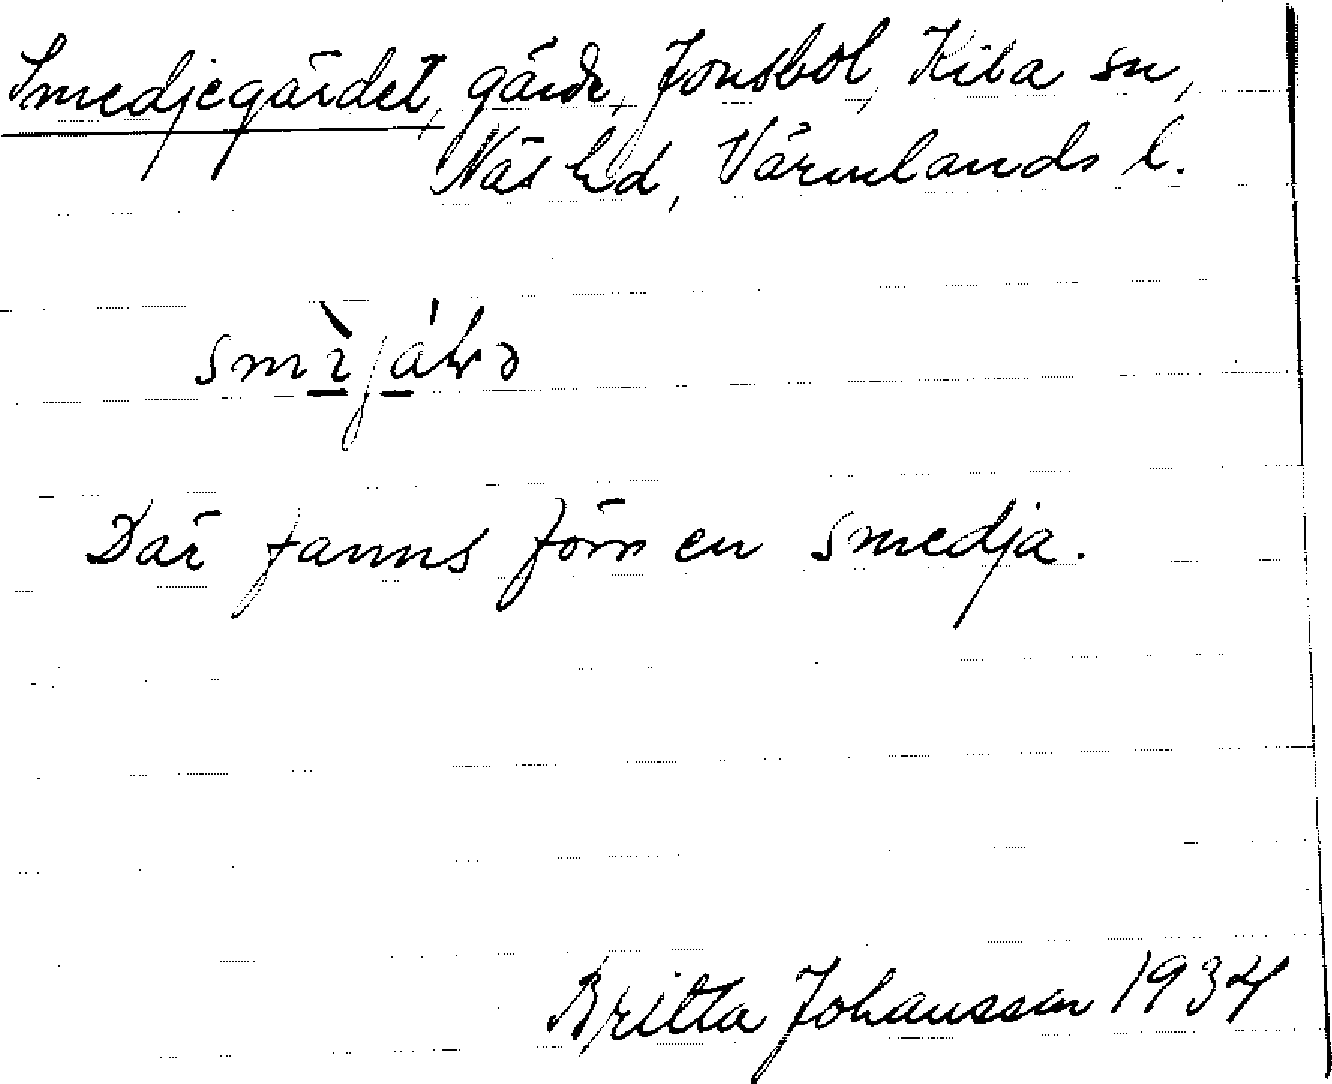 Smedjegärdet, gärde, Jonsbol, Kila sn,
Näs hd, Värmlands l.
Där fanns förr en smedja.
Britta Johansson 1934